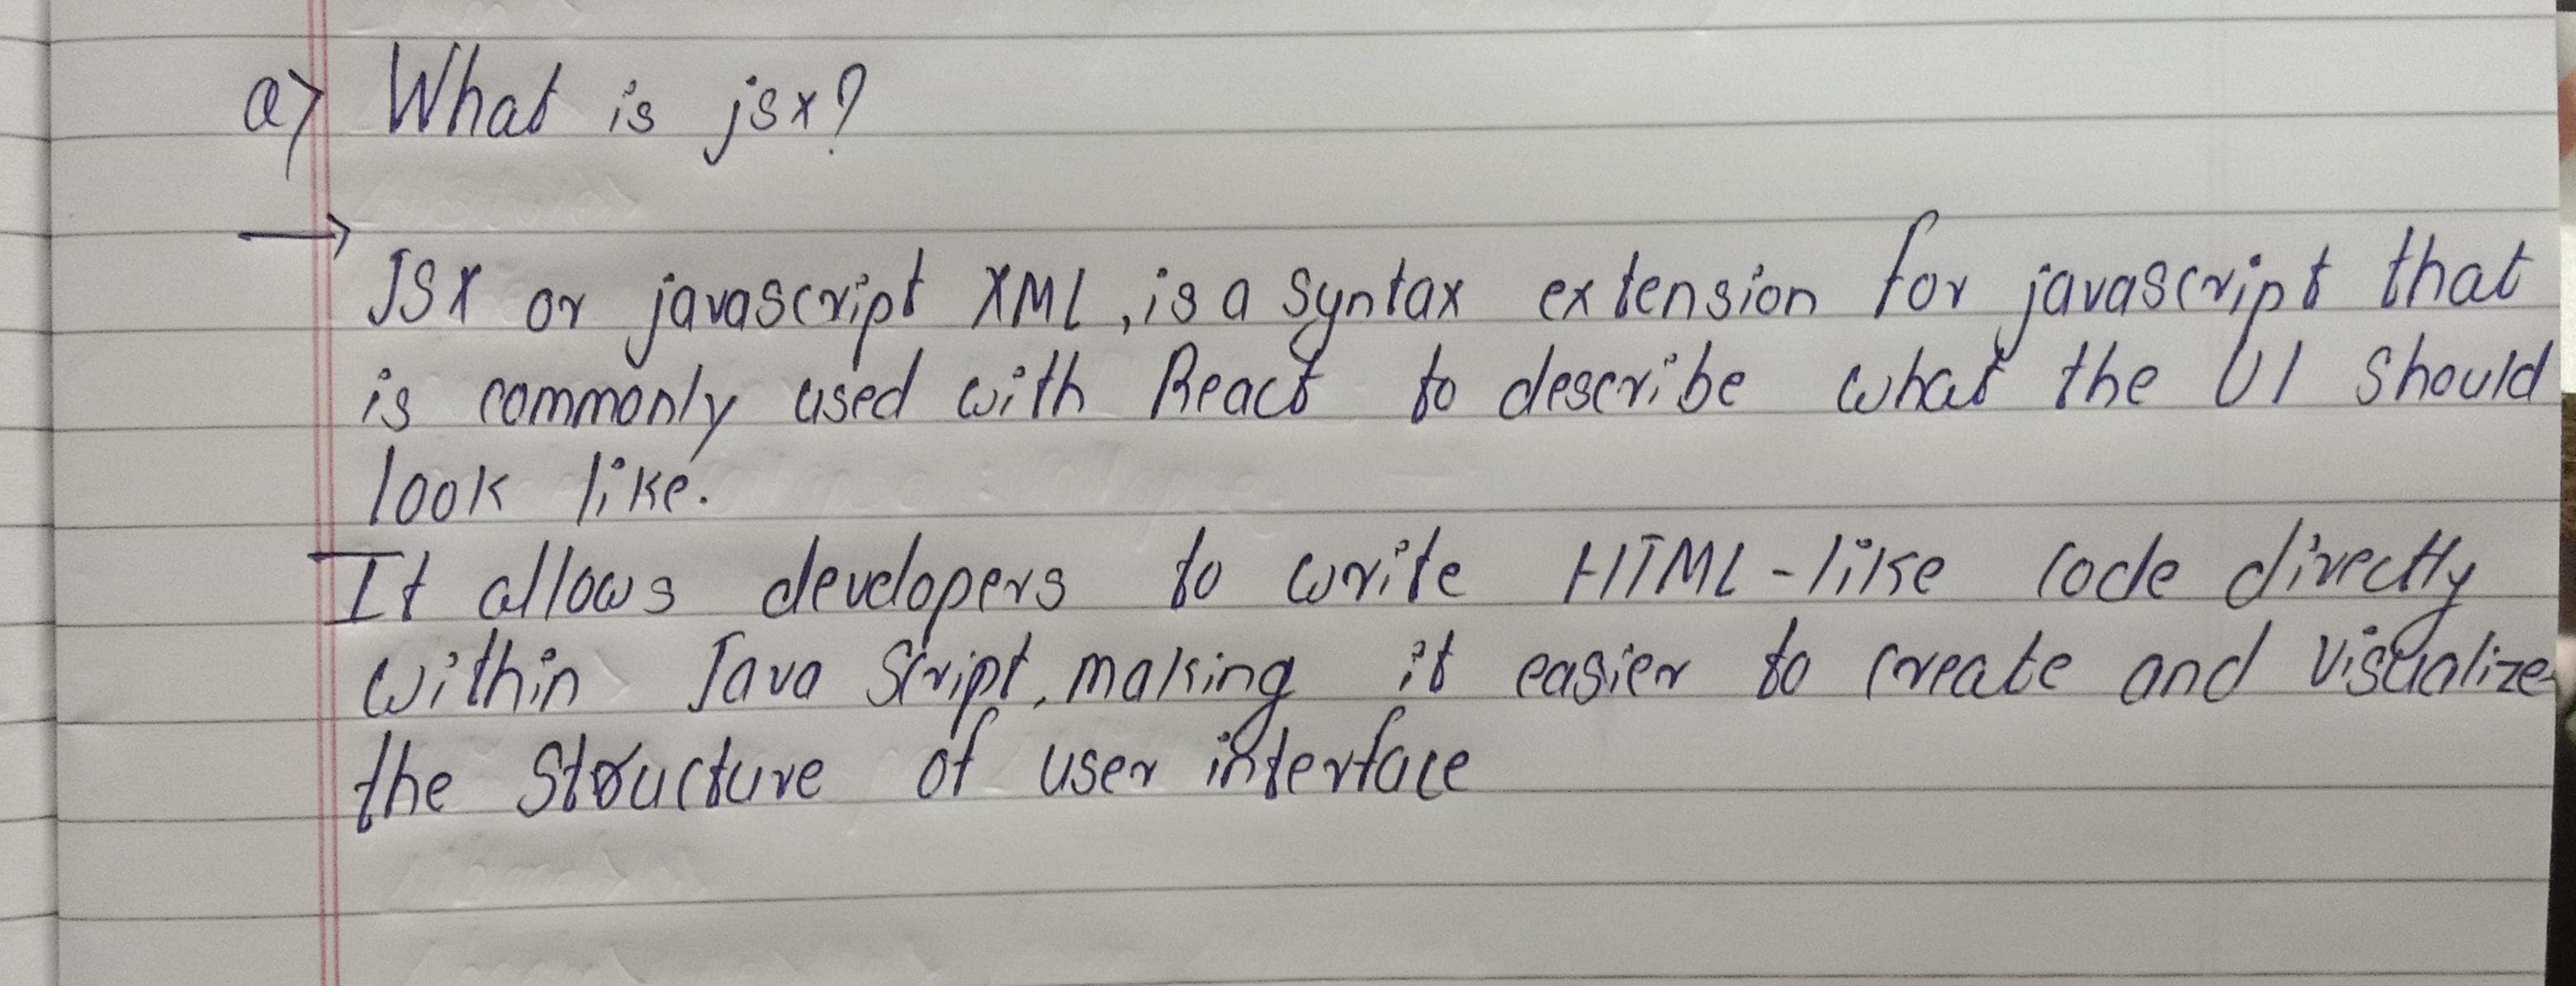 a) What is jsx?
→
JSX or javascript XML, is a syntax extension for javascript that
is commonly used with React to describe what the UI should
look like.
It allows developers to write HTML-like code directly
within Java Script, making it easier to create and visualize
the structure of user interface